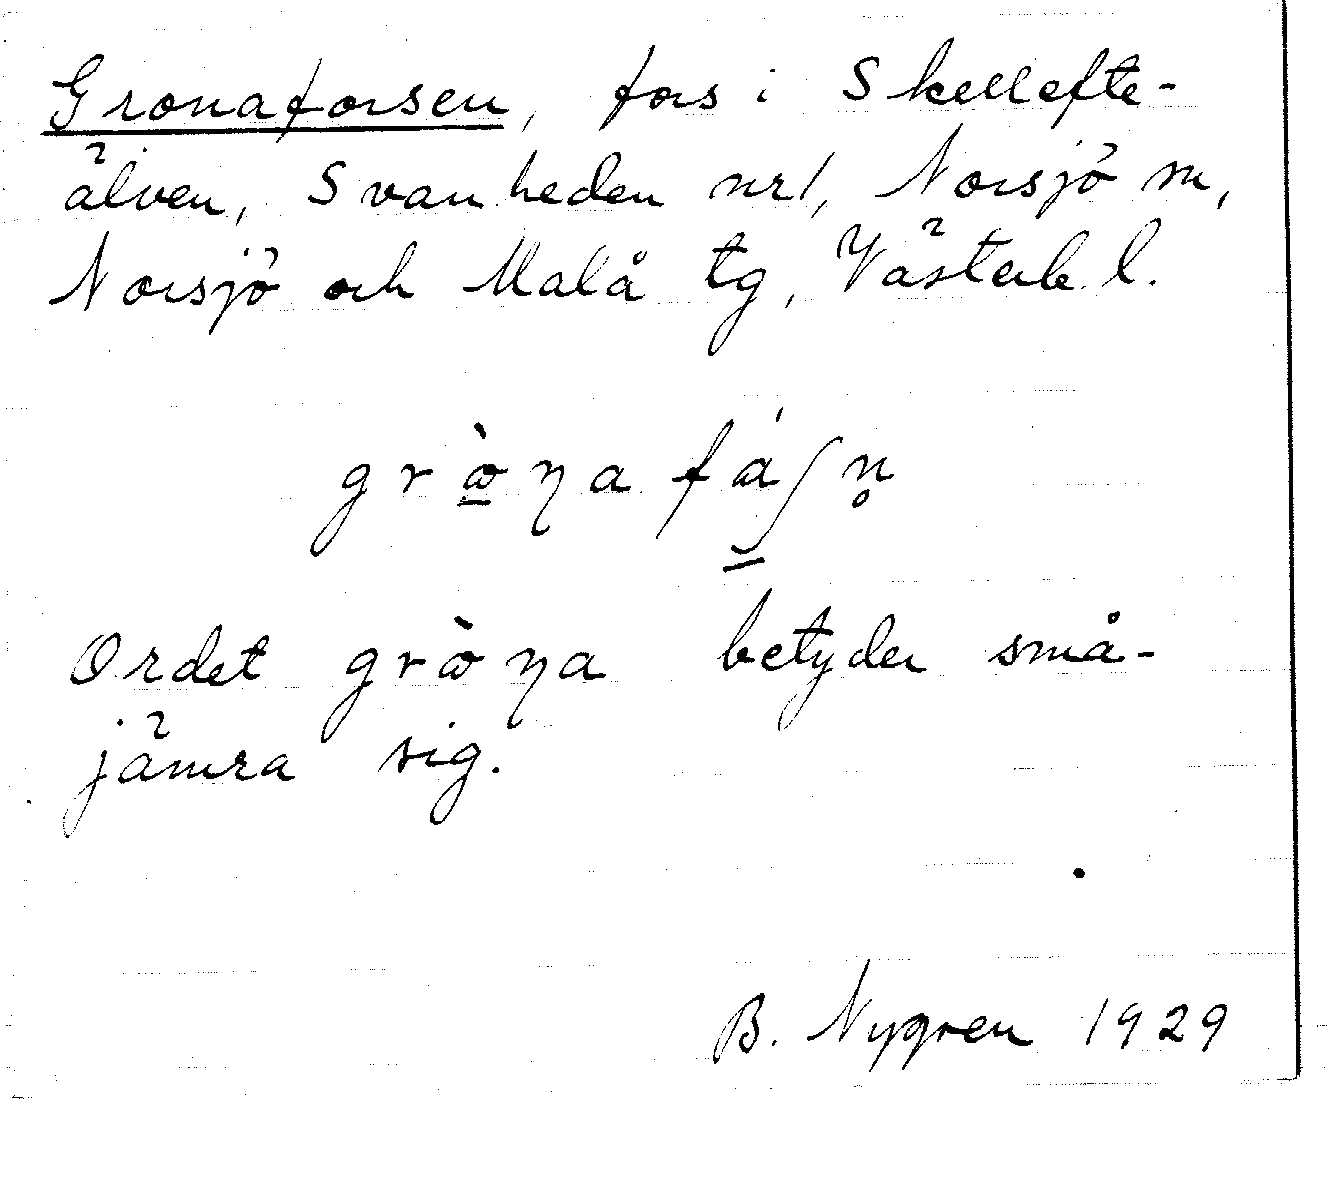 Gronaforsen, fors i Skellefte-
älven, Svanheden nr 1, Norsjö sn,
Norsjö och Malå tg, Västerb. l.
Ordet betyder små-
jämra sig.
B. Nygren 1929